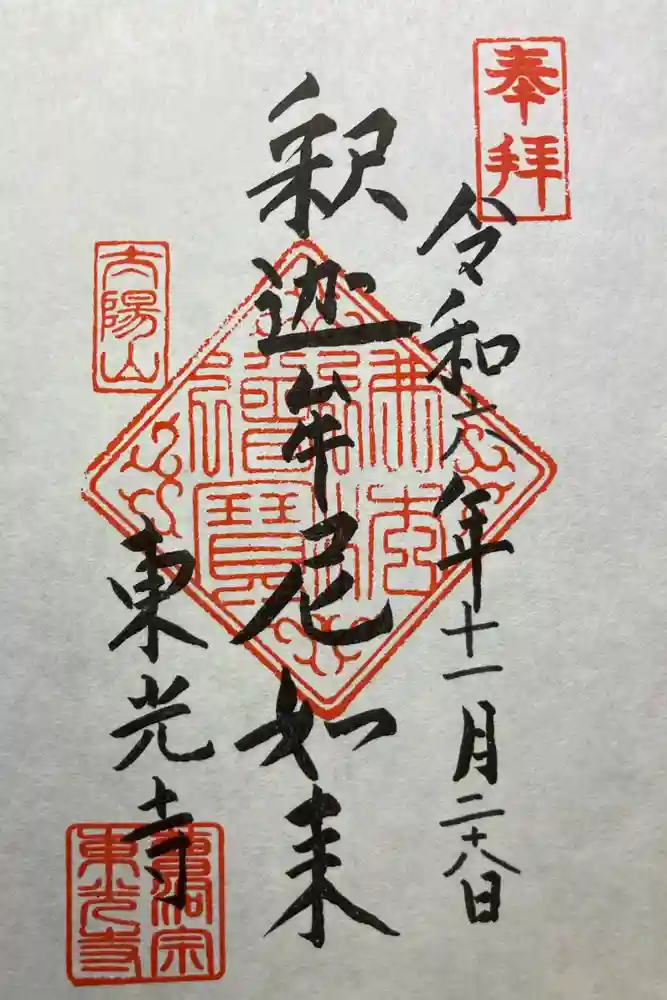 奉拝
令和六年十一月二十八日
釈迦牟尼如来
佛法
僧寶
太陽山
東光寺
曹洞宗
東光寺